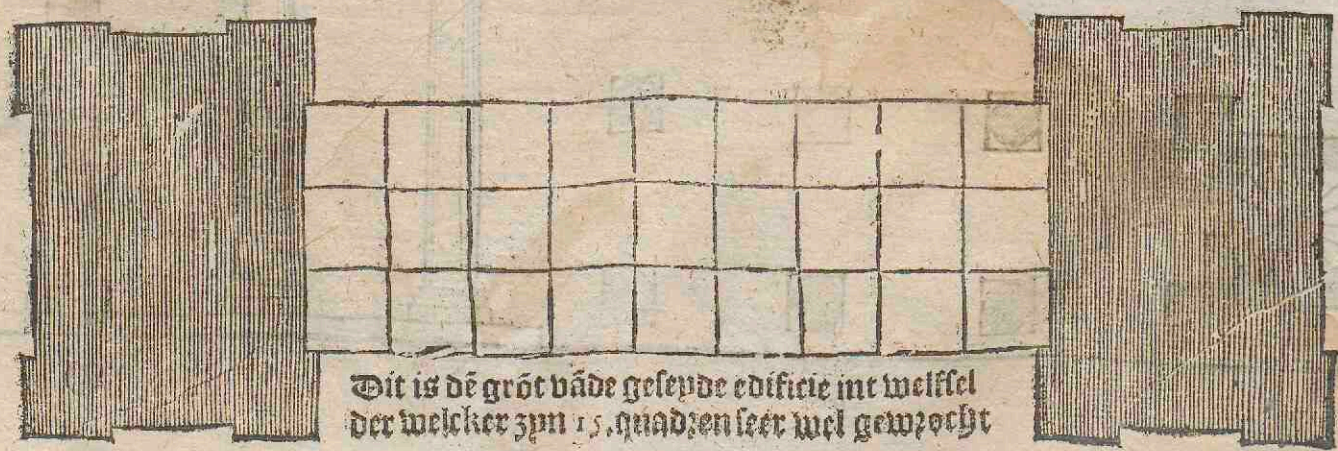 Dit is dē grōt vāde geseyde edificie int welfsel
der welcker zyn 15. quadzen seer wel gewzocht